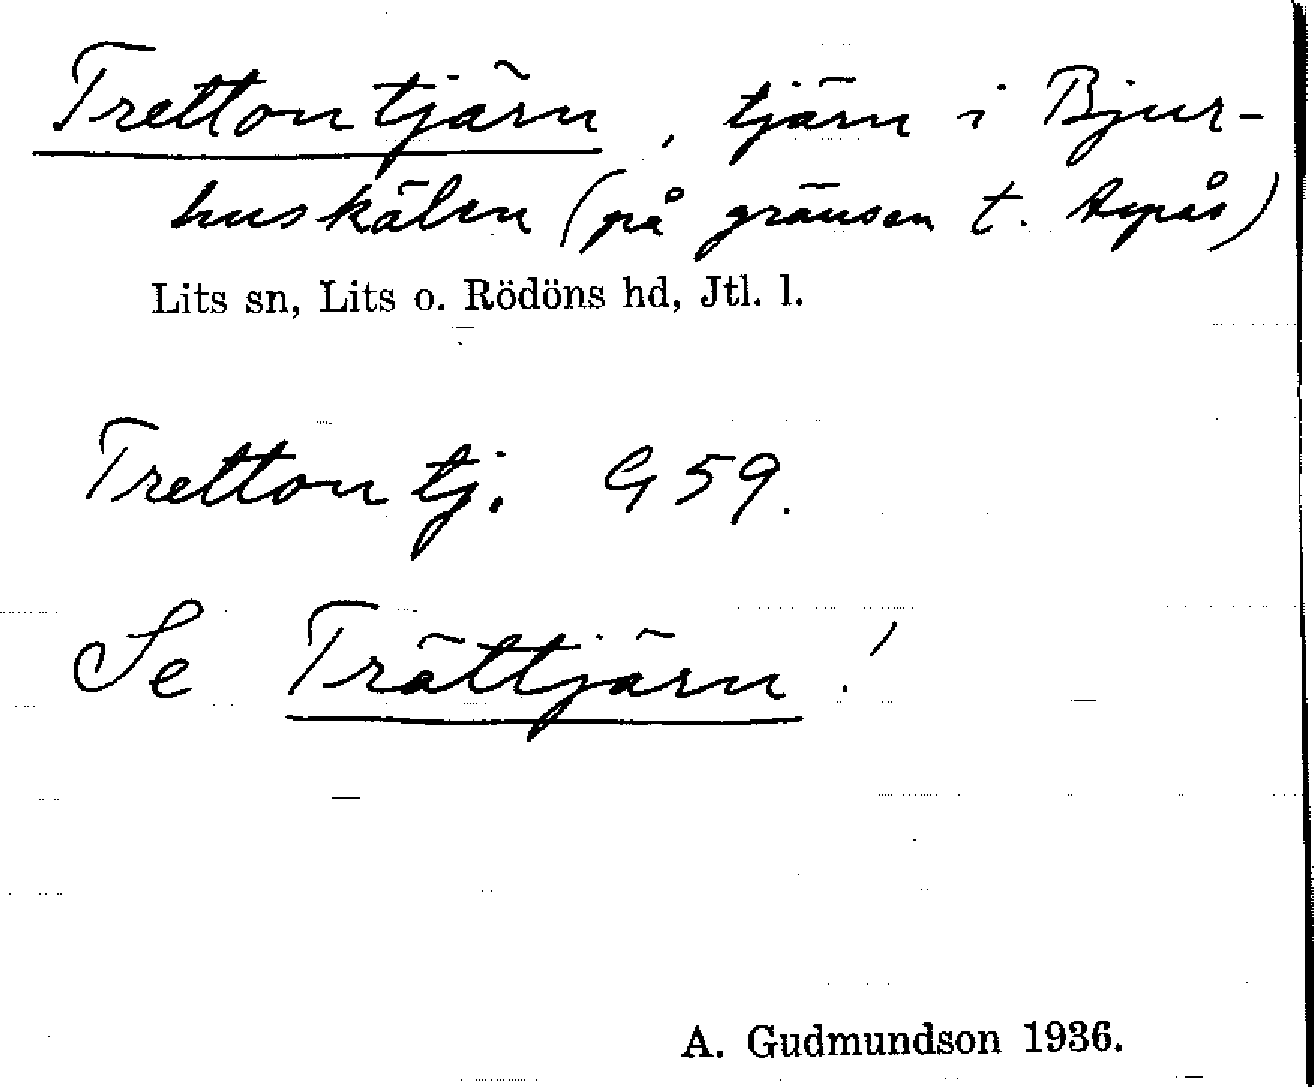 Trettontjärn, tjärn i Bjur-
huskälen (på gränsen t. Aspås)
Lits sn, Lits o. Rödöns hd, Jtl. l.
Trettontj. G 59.
Se Trättjärn!
A. Gudmundson 1936.